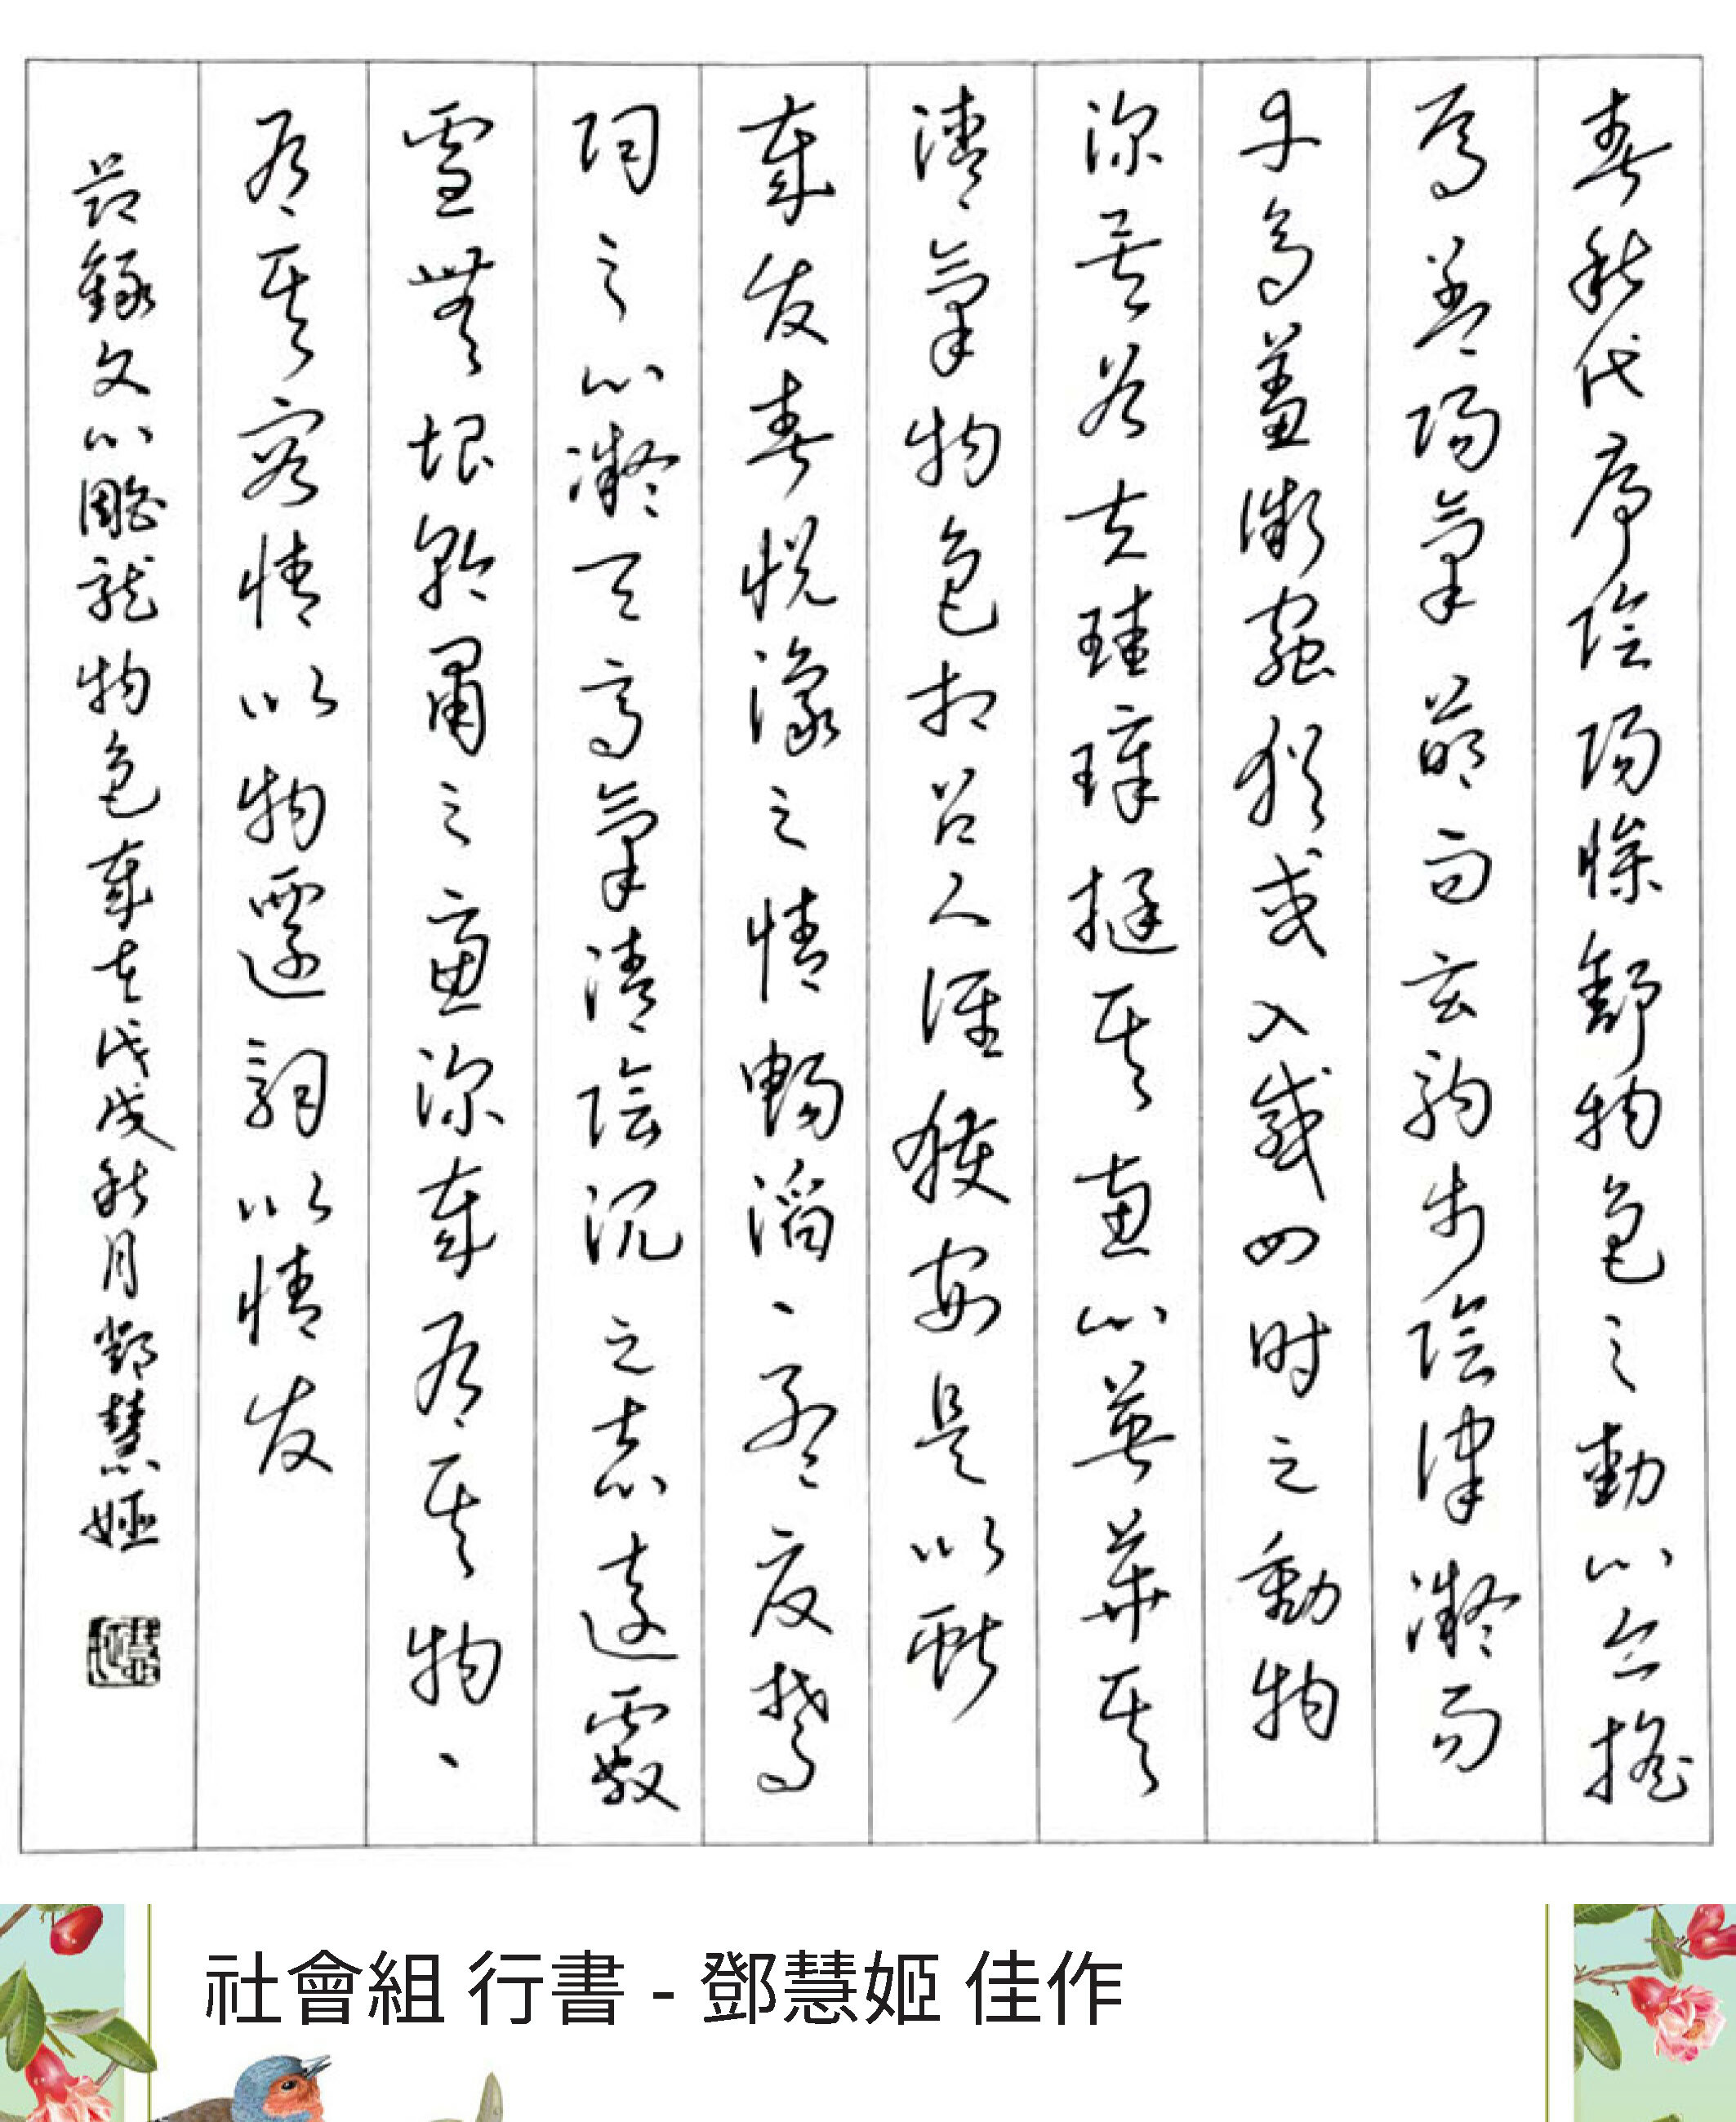 春秋代序陰陽慘舒物色之動心亦搖
焉蓋陽氣萌而玄駒步陰律凝而
丹鳥羞微蟲猶或入感四時之動物
深矣若夫珪璋挺其惠心英華其
清氣物色相召人誰獲安是以献
歲发春悅豫之情暢滔滔孟夏鬱
陶之心凝天高氣清陰沉之志遠霰
雪無垠矜肅之慮深歲有其物物
有其容情以物遷詞以情发
節錄文心雕龍物色歲在戊戌秋月鄧慧姬
社會組 行書 - 鄧慧姬 佳作